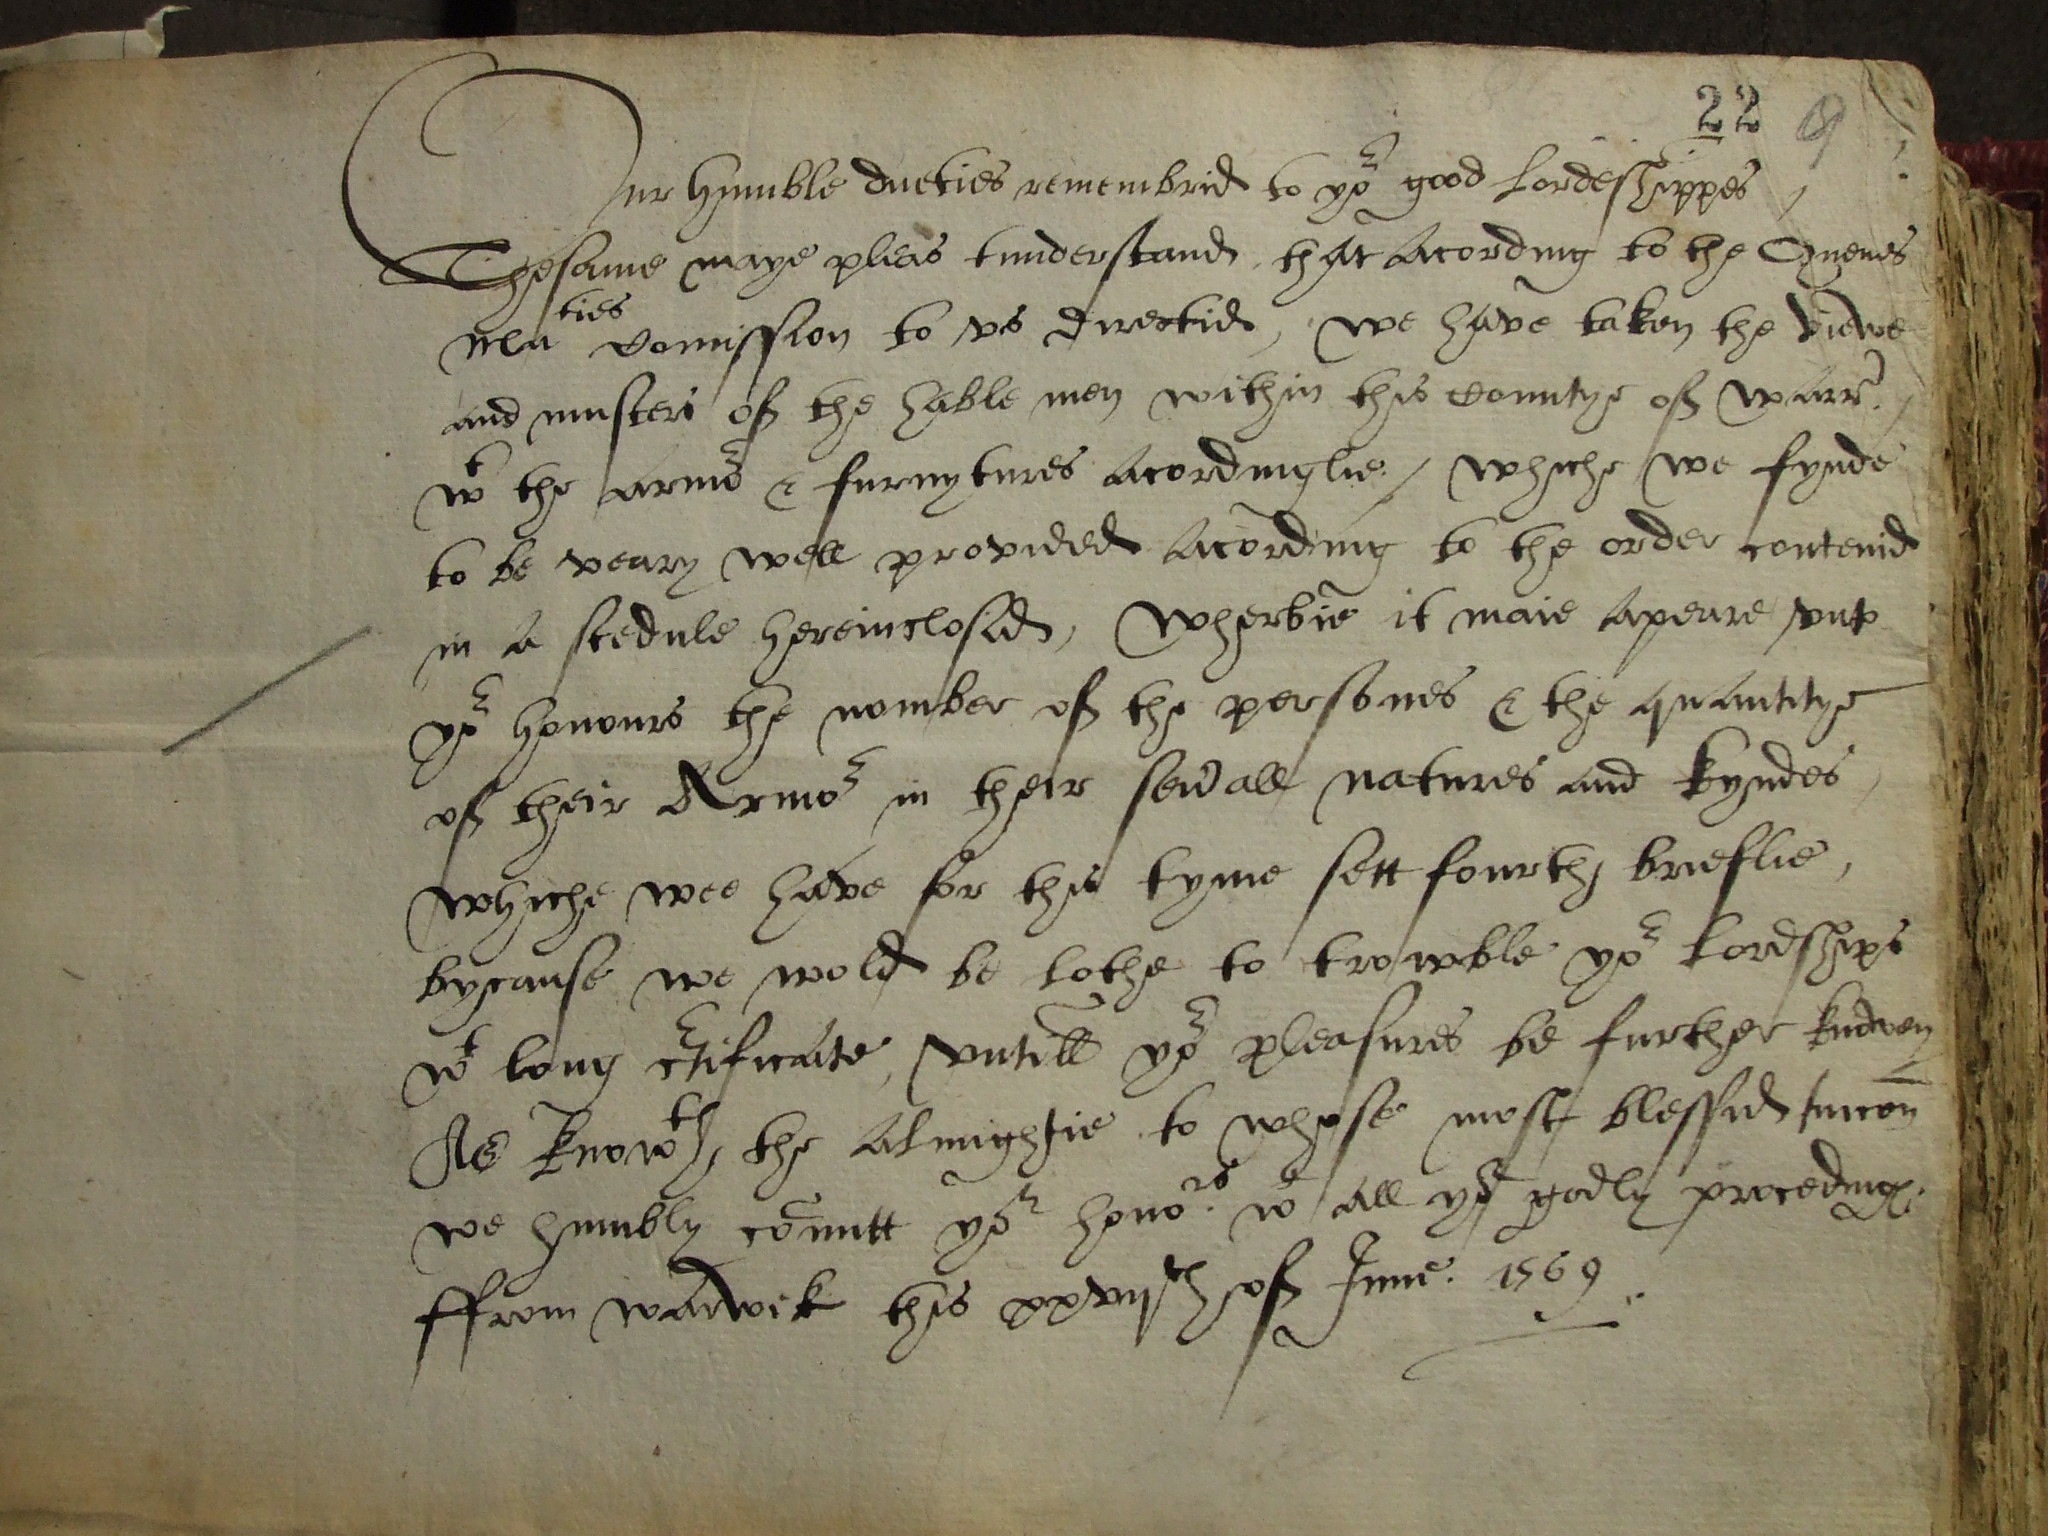 22 9
Our humble dueties remembrid to yor good Lordeshippes,
Thesame maye pleas tunderstand, that Acording to the Quenes
Maties Comission to vs directid, we have taken the viewe
and musters of the hable men within this Countye of warr,
wt the armor & furnytures Acordinglie, whiche we fynde
to be veary well provided Acording to the order contenid
in A scedule hereinclosid, wherbie it maie Apeare vnto
yor honours the nomber of the persones & the quantitye
of their Armor in their seu'all natures and kyndes,
whiche wee have for this tyme sett fourth brieflie,
bycause we wold be lothe to trowble yor Lordships
wt long c'tificate, vntill yor pleasures be further knowen
As knowth the Almightie to whose most blessid
we humbly comitt yor honors. wt all yor godly proceding
ffrom warwek this xxviijth of June. 1569.